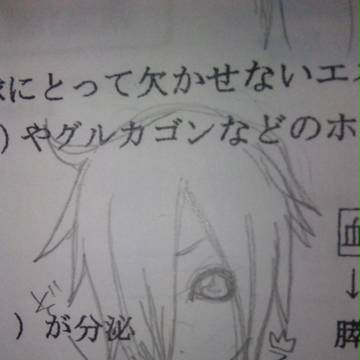 にとって欠かせないエ
)やグルカゴンなどのホ
血
↓
膵
)が分泌